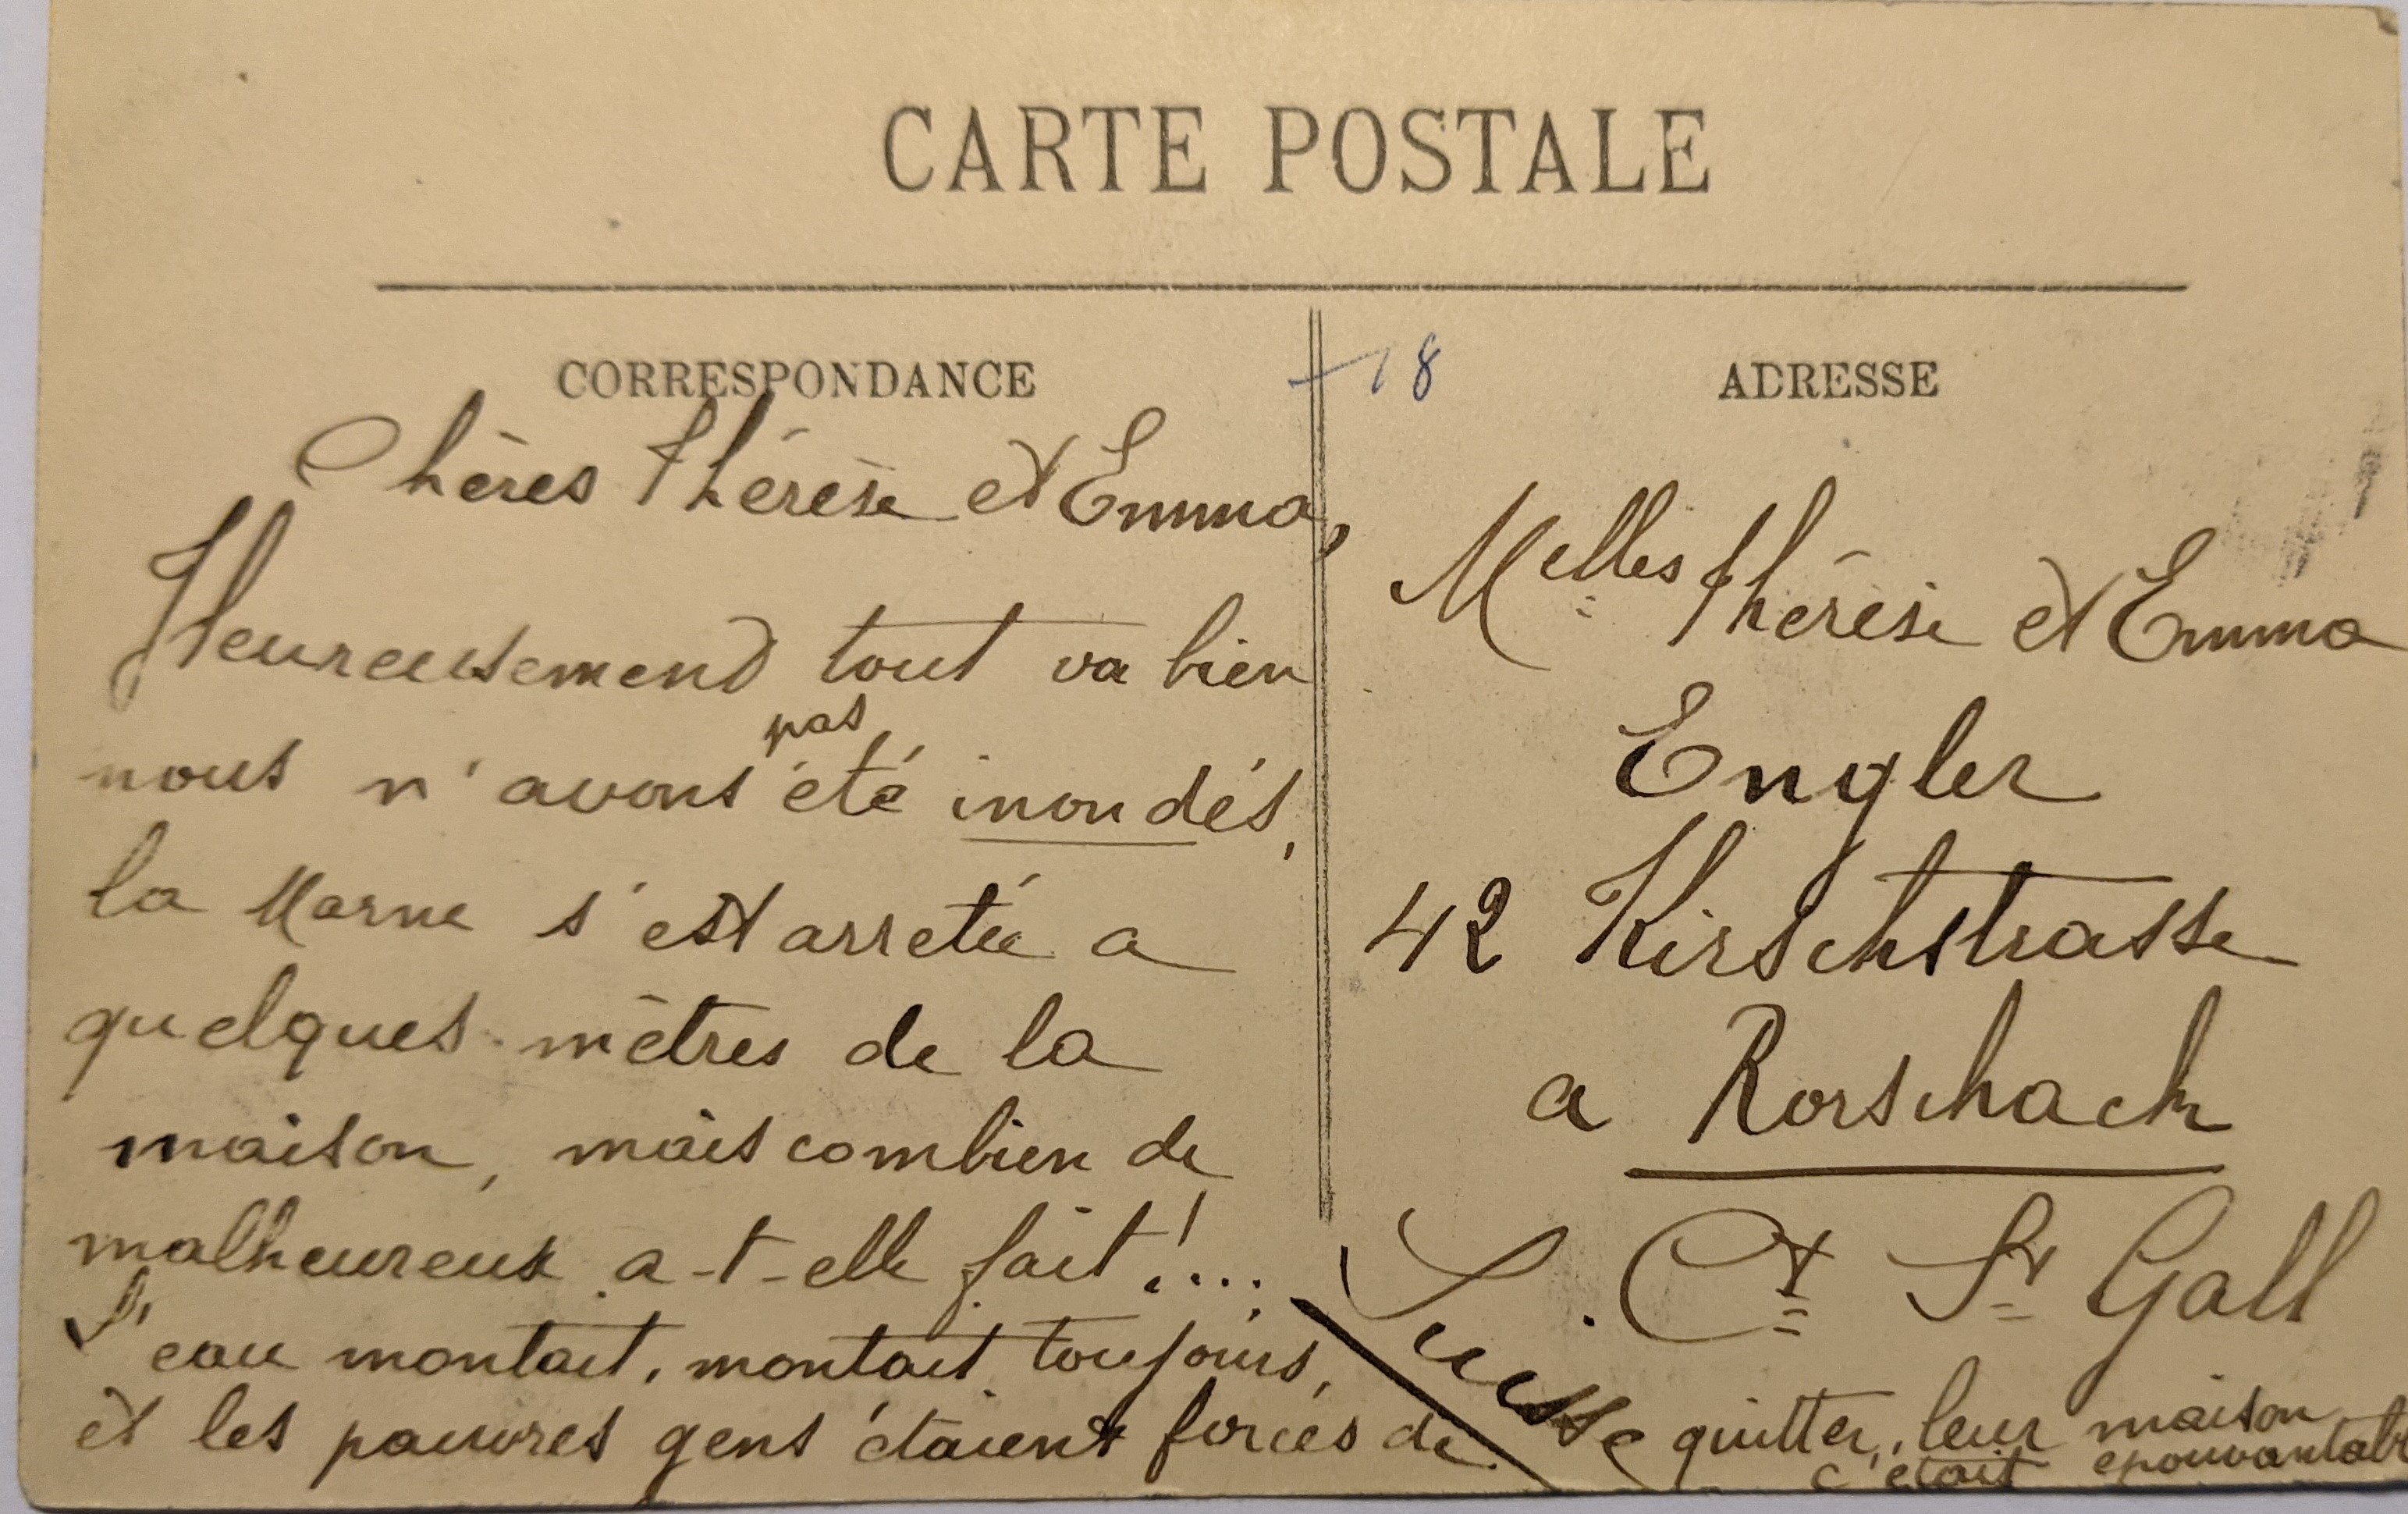 CARTE POSTALE
CORRESPONDANCE
Chères Thérèse et Emma,
Heureusement tout va bien
nous n'avons pas été inondés,
la Marne s'est arretée a
quelques mètres de la
maison, mais combien de
malheureux a-t-elle fait!...
L'eau montait, montait toujours,
et les pauvres gens étaient forcés de
quitter leur maison
c'était epouvantabl
+18
ADRESSE
Melles Thérèse et Emma
Engler
42 Kirschstrasse
a Rorschach
Ct St Gall
Suisse